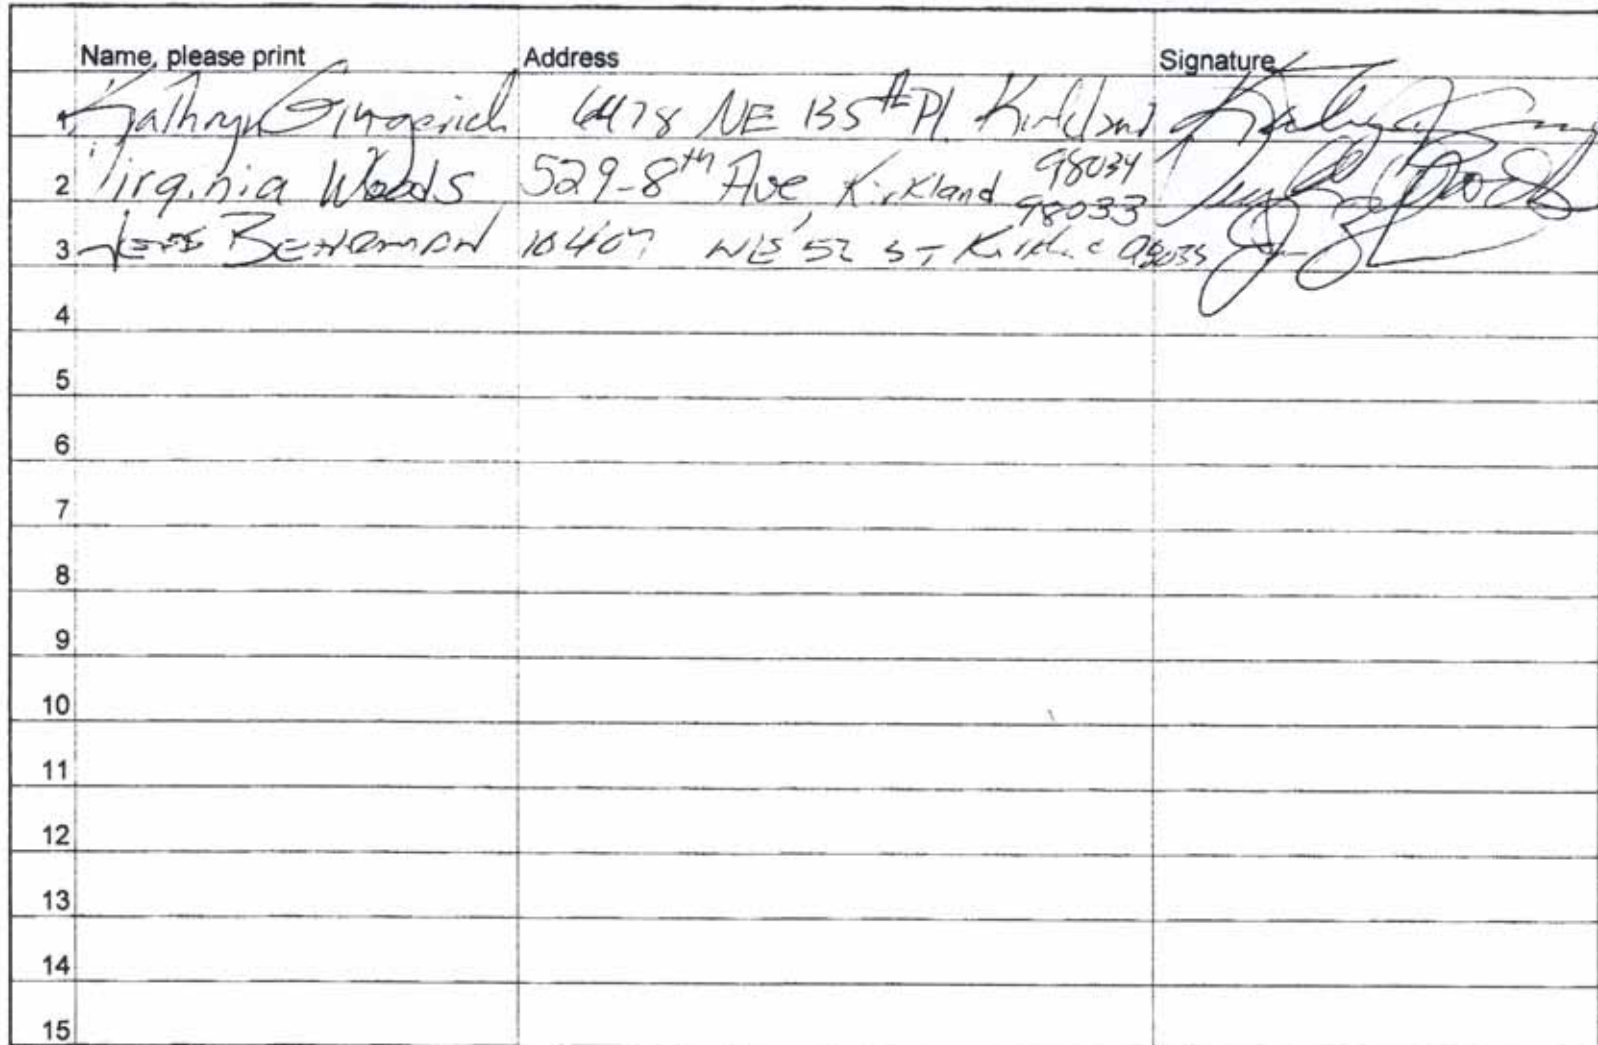 Name, please print Address Signature
Kathryn Gingerich NE 135th Pl Kirkland
98034
2 Virginia Woods 529-8th Ave Kirkland 98033
3 Jeff 10407 NE 52 ST 98033
4
5
6
7
8
9
10
11
12
13
14
15